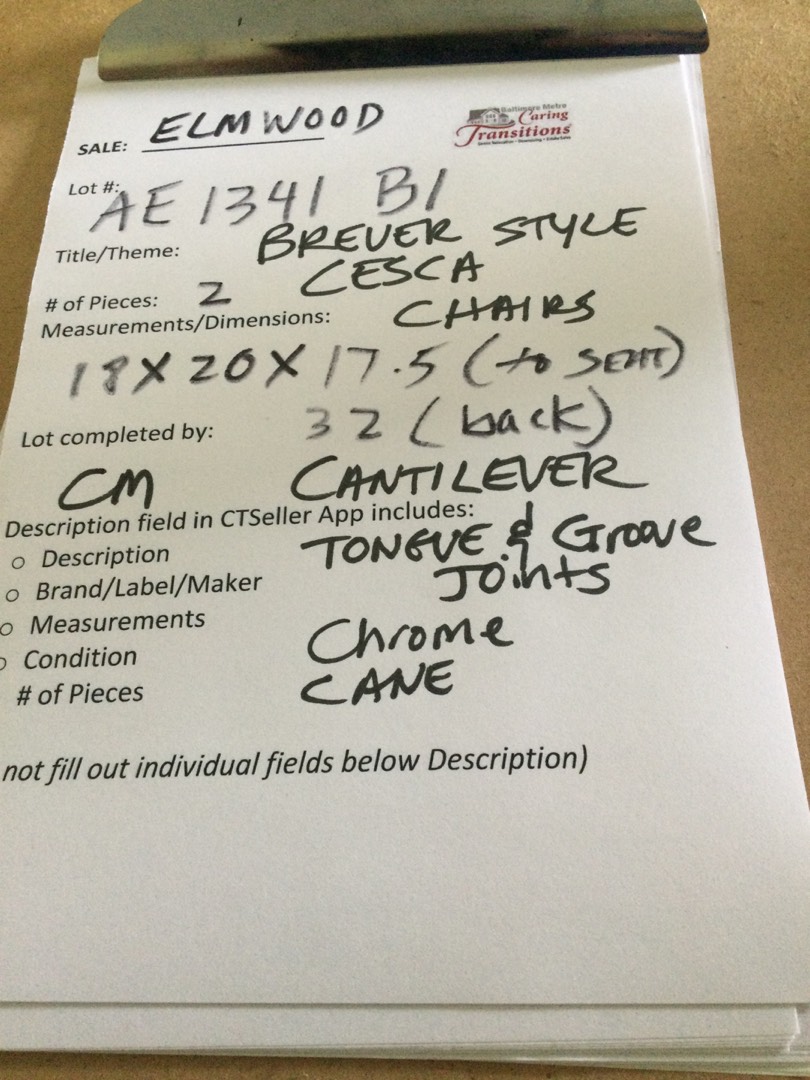 SALE: ELMWOOD
Baltimore Metro
Caring
Transitions
Lot #: AE 1341 B1
Title/Theme: BREUER STYLE
CESCA
# of Pieces: 2
CHAIRS
Measurements/Dimensions:
18 X 20 X 17.5 (to SEAT)
32 (back)
Lot completed by:
CM
CANTILEVER
Description field in CTSeller App includes:
TONGUE & Groove
o Description
JOints
o Brand/Label/Maker
o Measurements
Chrome
o Condition
CANE
# of Pieces
not fill out individual fields below Description)